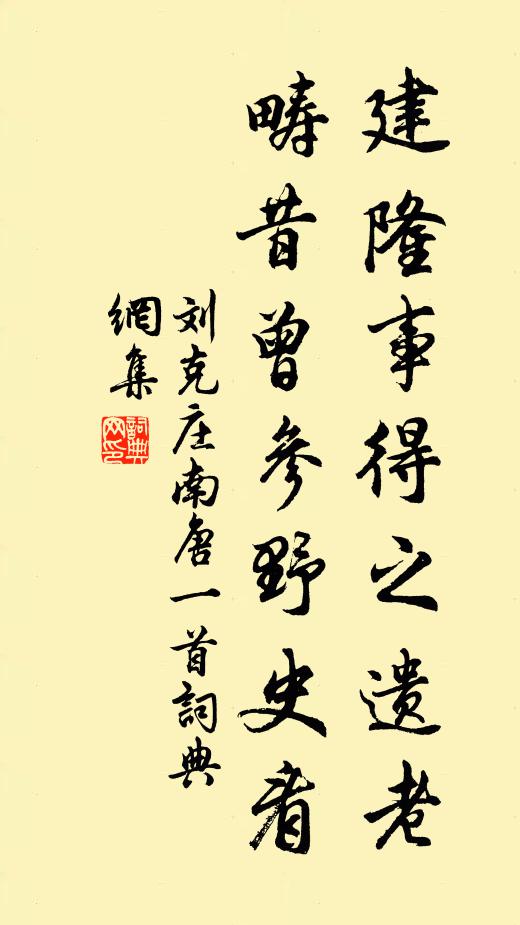 建隆事得之遺老
疇昔曾參野史看
刘克庄南唐一首詞典
網集
詞典網印